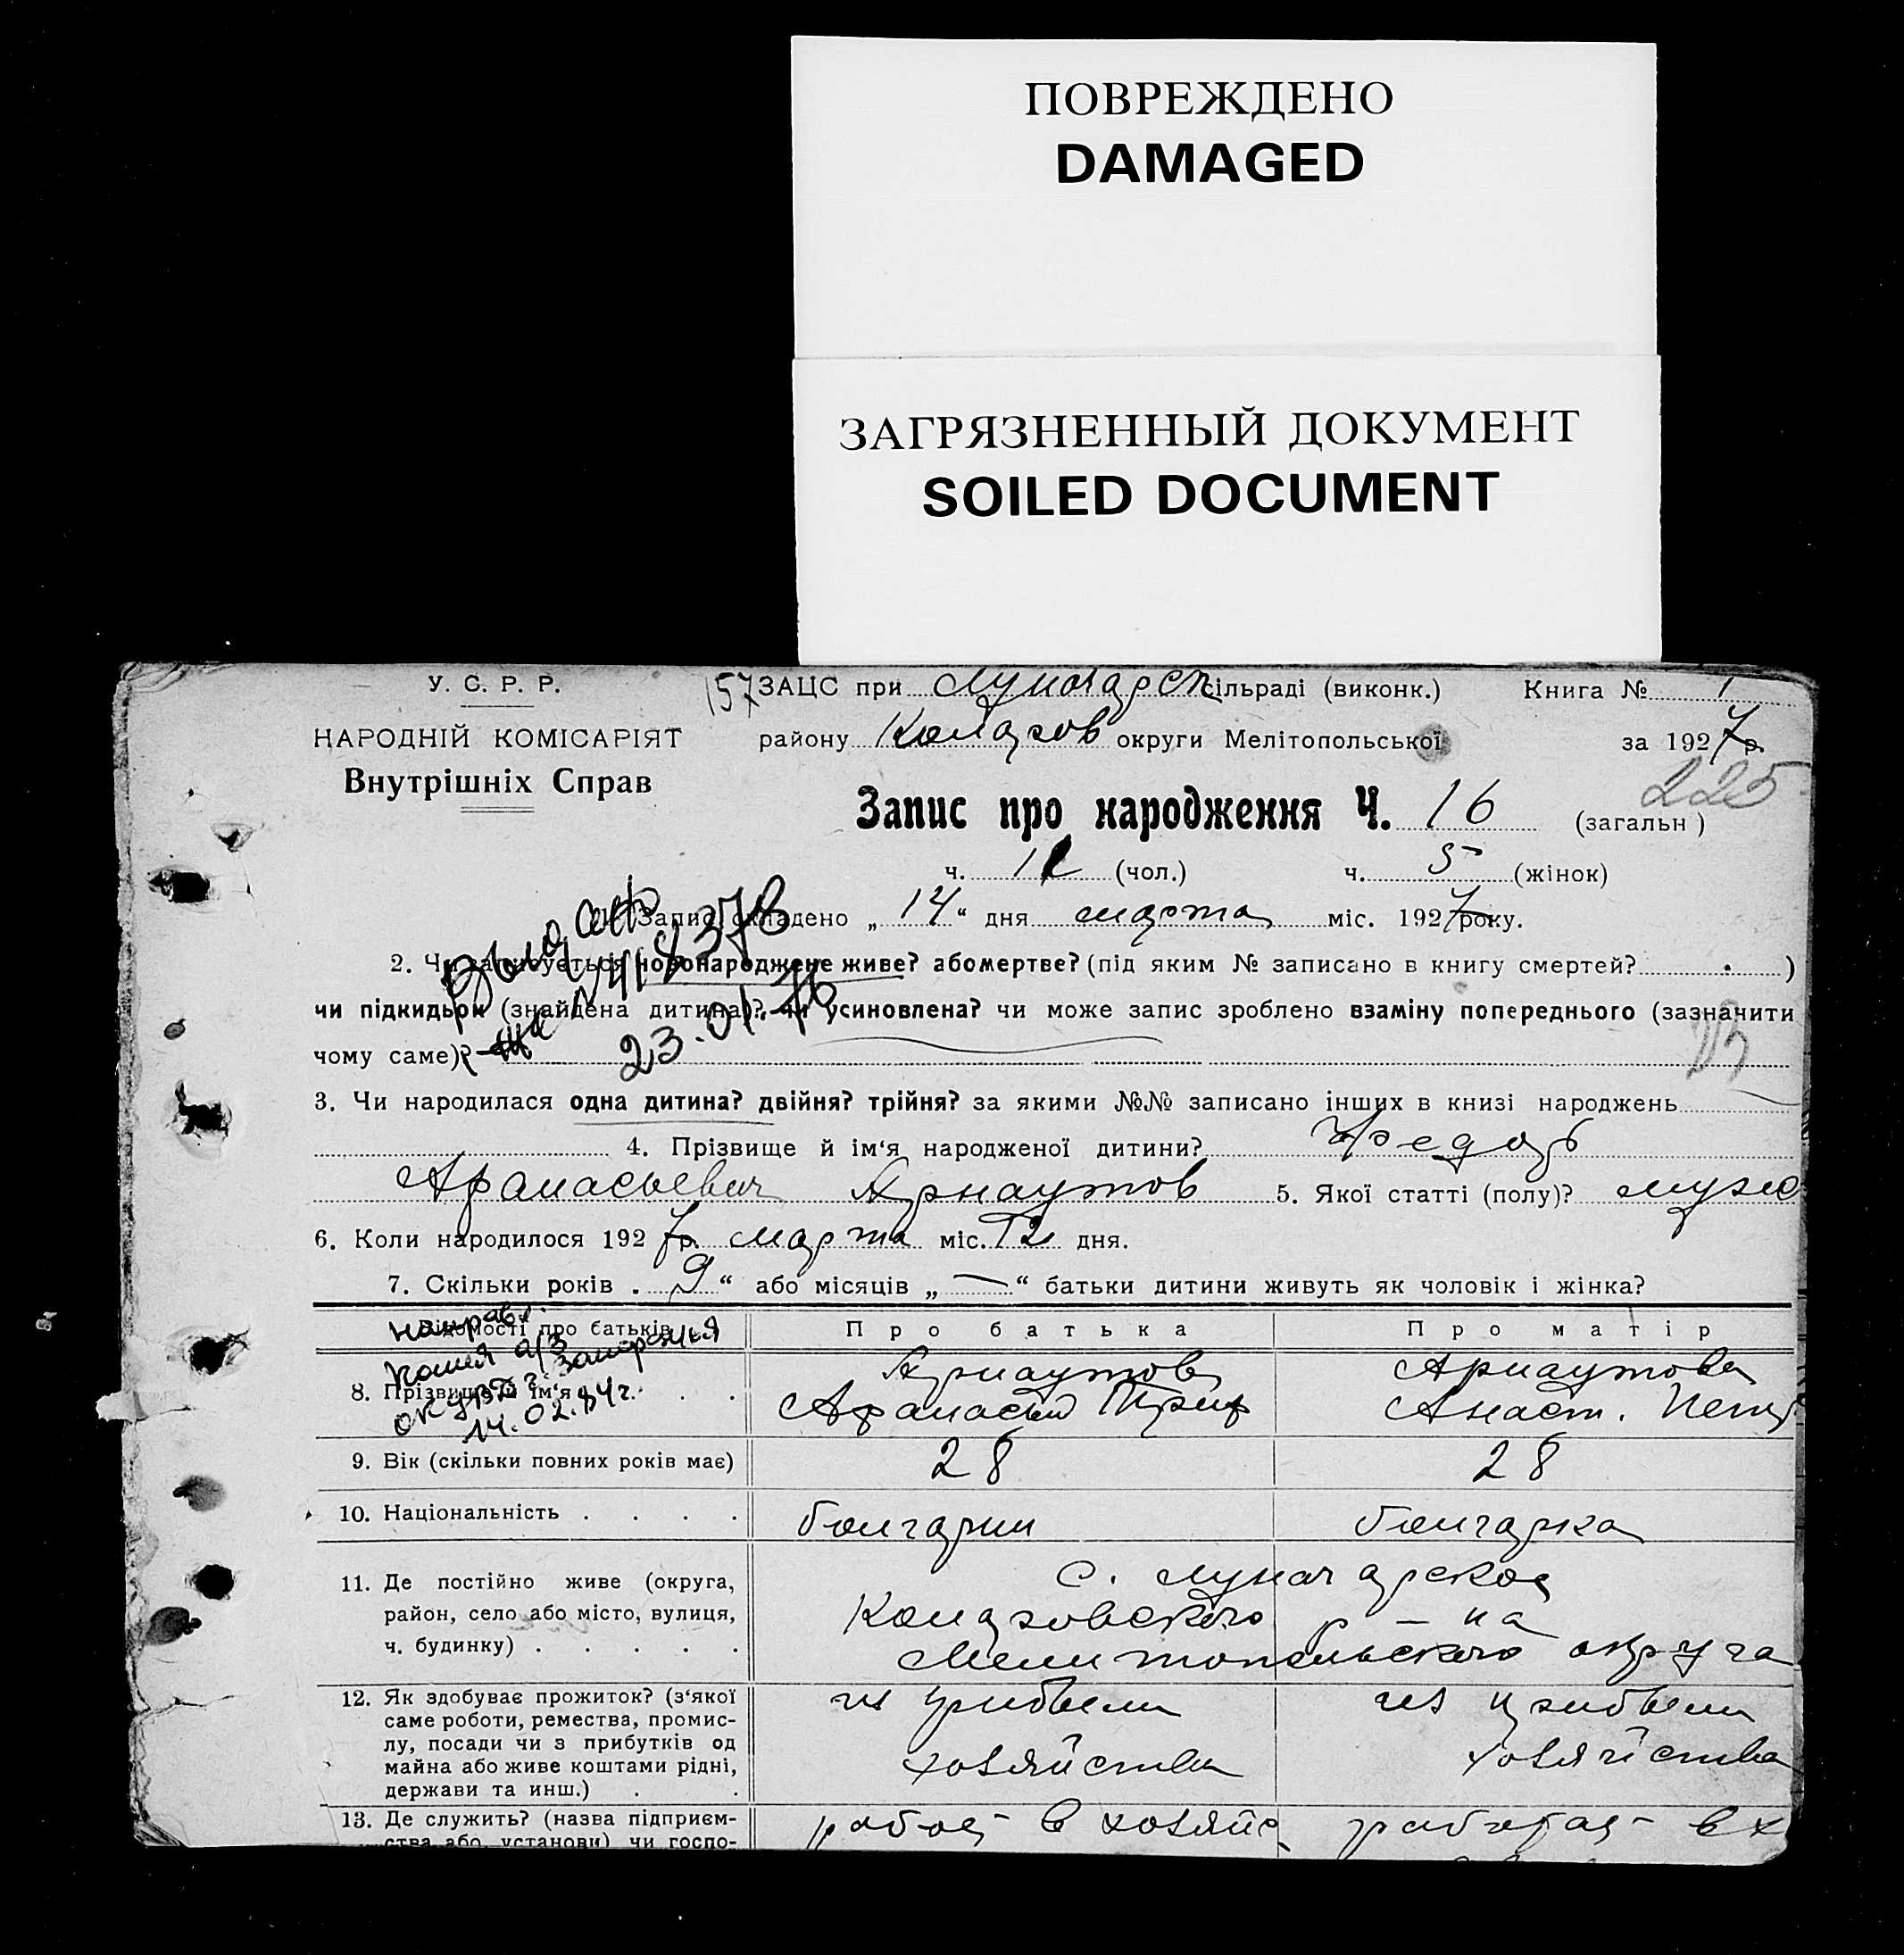 ПОВРЕЖДЕНО
DAMAGED
ЗАГРЯЗНЕННЫЙ ДОКУМЕНТ
SOILED DOCUMENT
У. С. Р. Р.
157 ЗАЦС при Луначарск сільраді (виконк.) Книга № 1
НАРОДНІЙ КОМІСАРІЯТ
району Коларов округи Мелітопольської за 1927 р.
Внутрішніх Справ
225
Запис про народження Ч. 16 (загальн )
ч. 11 (чол.) ч. 5 (жінок)
Запис складено „ 14 “ дня марта міс. 1927 року.
Выд. 
№ 418376
23.01.76
2. Чи записується новонароджене живе? або мертве? (під яким № записано в книгу смертей? )
чи підкидьок (знайдена дитина)? чи усиновлена? чи може запис зроблено взаміну попереднього (зазначити
чому саме)?
3. Чи народилася одна дитина? двійня? трійня? за якими №№ записано інших в книзі народжень
4. Прізвище й ім‘я народженої дитини? Федор
Афанасьевич Арнаутов 5. Якої статті (полу)? мужс
6. Коли народилося 1927 р. марта міс. 12 дня.
7. Скільки років . 9 “ або місяців „ — “ батьки дитини живуть як чоловік і жінка?
Відомості про батьків Про батька Про матір
направл.
копия а/з
Запорожья
14.02.84г.
8. Прізвище й ім‘я . . . Арнаутов Арнаутова
Афанасий Триф Анаст. Петр
9. Вік (скільки повних років має) 28 28
10. Національність . . . . болгарин болгарка
11. Де постійно живе (округа, район, село або місто, вулиця, ч. будинку) . . . . .
с. Луначарское
Коларовского р-на
Мелитопольского округа
12. Як здобуває прожиток? (з‘якої
саме роботи, ремества, промис-
лу, посади чи з прибутків од
майна або живе коштами рідні,
держави та инш.) . .
из прибыли из прибыли
хозяйства хозяйства
13. Де служить? (назва підприєм-
ства або установи) чи госпо-
работ в хозяйс работает в х